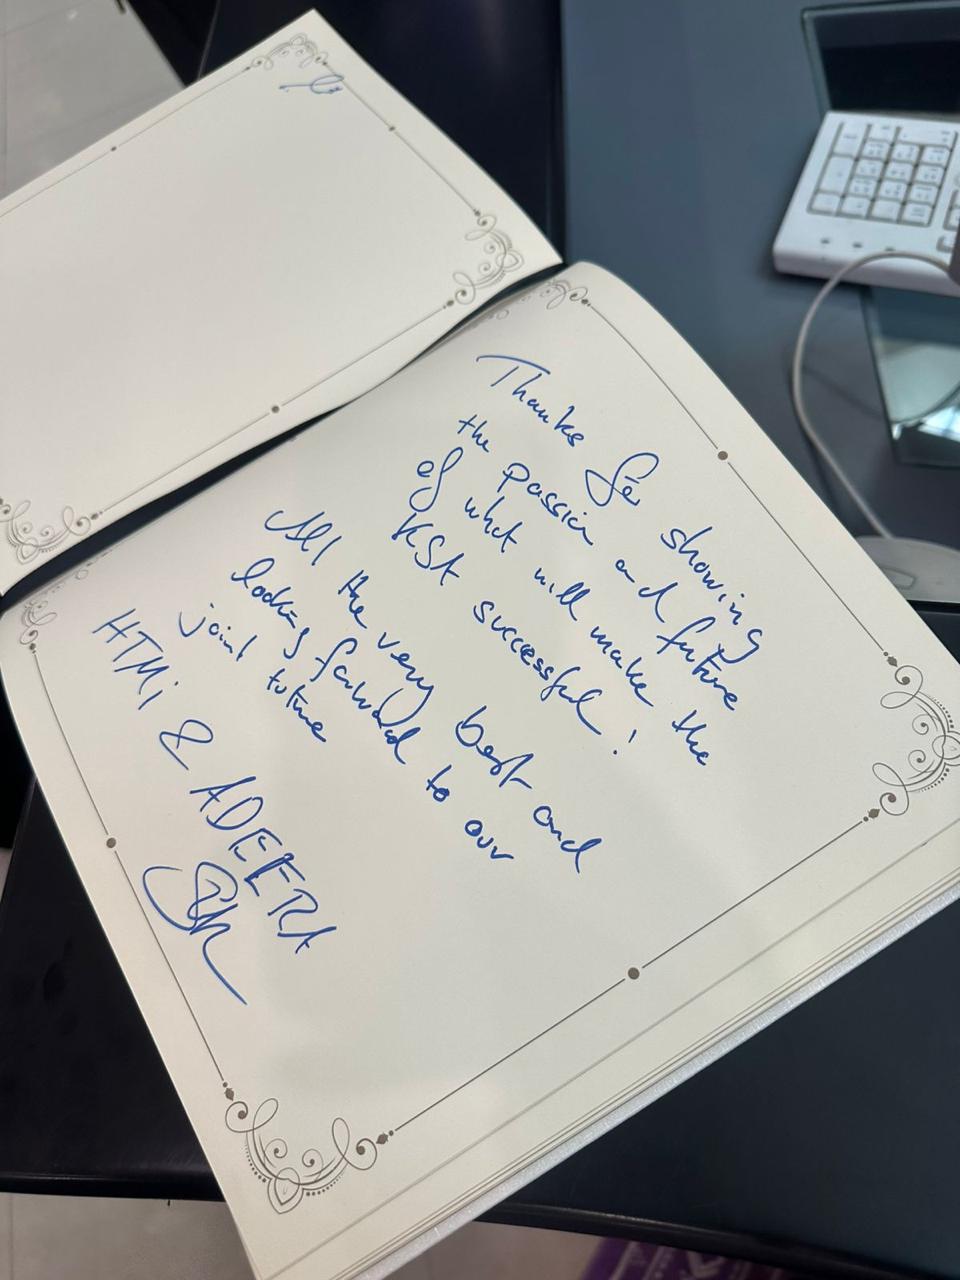 Thanks for showing
the passion and future
of what will make the
KSA successful!
All the very best and
looking forward to our
joint future
HTMi & ADEERA